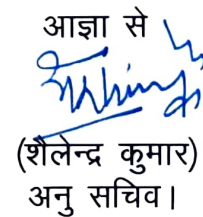 आज्ञा से
(शैलेन्द्र कुमार)
अनु सचिव।